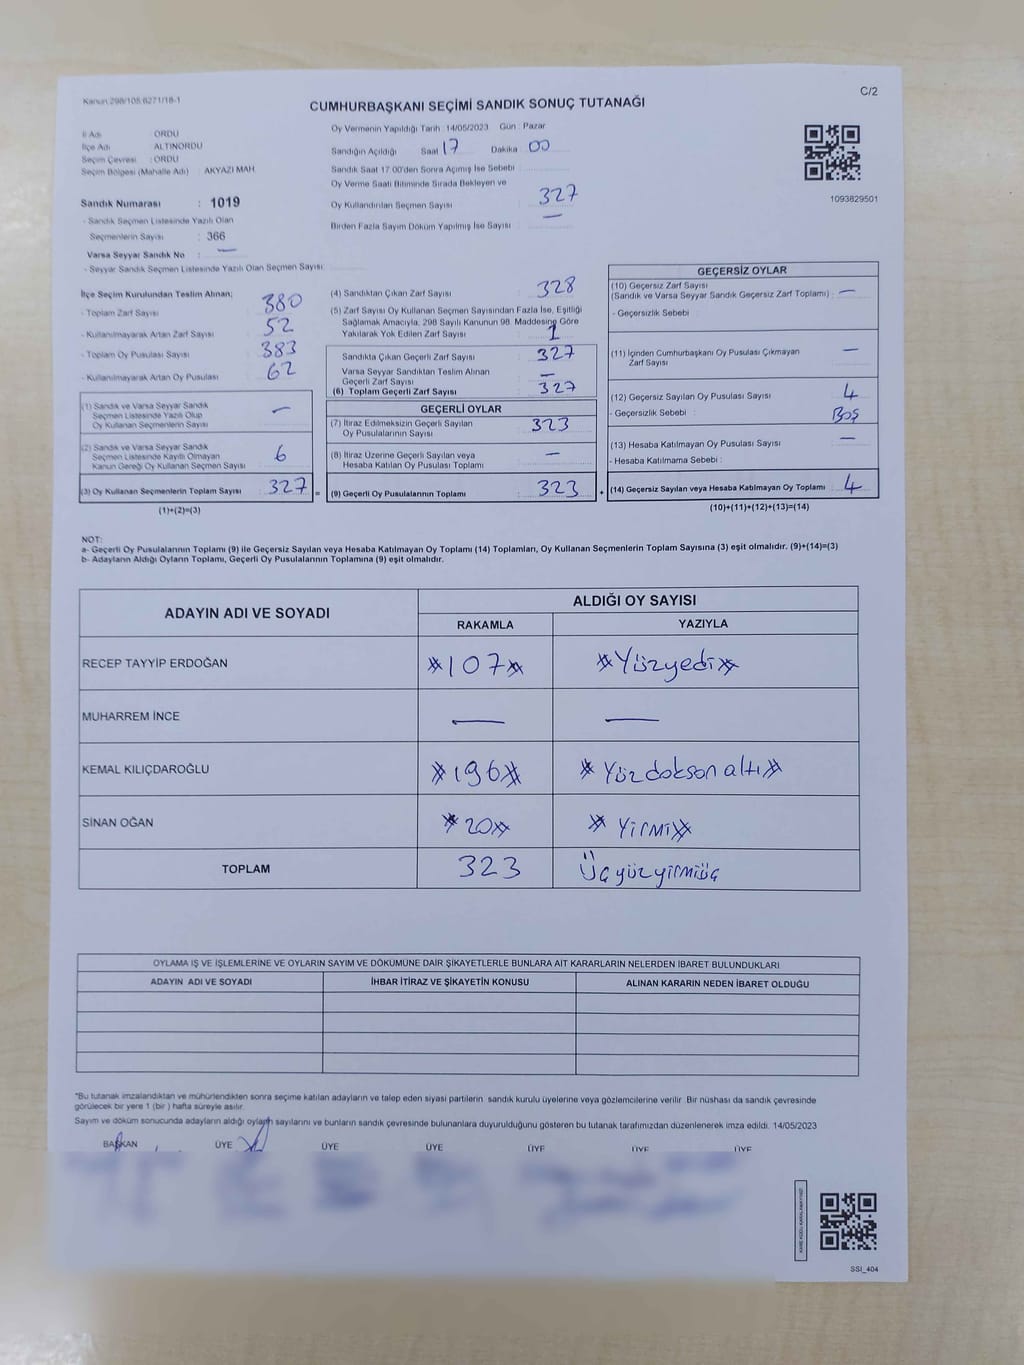 Kanun 298/105.6271/18-1
C/2
CUMHURBAŞKANI SEÇİMİ SANDIK SONUÇ TUTANAĞI
İl Adı : ORDU
İlçe Adı : ALTINORDU
Seçim Çevresi : ORDU
Seçim Bölgesi (Mahalle Adı) : AKYAZI MAH
Sandık Numarası : 1019
- Sandık Seçmen Listesinde Yazılı Olan
Seçmenlerin Sayısı : 366
Varsa Seyyar Sandık No : —
- Seyyar Sandık Seçmen Listesinde Yazılı Olan Seçmen Sayısı:
Oy Vermenin Yapıldığı Tarih :14/05/2023 Gün : Pazar
Sandığın Açıldığı Saat 17 Dakika 00
Sandık Saat 17.00'den Sonra Açımış İse Sebebi :
Oy Verme Saati Bitiminde Sırada Bekleyen ve
Oy Kullandırılan Seçmen Sayısı : 327
Birden Fazla Sayım Döküm Yapılmış İse Sayısı : —
1093829501
İlçe Seçim Kurulundan Teslim Alınan:
- Toplam Zarf Sayısı : 380
- Kullanılmayarak Artan Zarf Sayısı : 52
- Toplam Oy Pusulası Sayısı : 383
- Kullanılmayarak Artan Oy Pusulası : 62
(1) Sandık ve Varsa Seyyar Sandık
Seçmen Listesinde Yazılı Olup
Oy Kullanan Seçmenlerin Sayısı : —
(2) Sandık ve Varsa Seyyar Sandık
Seçmen Listesinde Kayıtlı Olmayan
Kanun Gereği Oy Kullanan Seçmen Sayısı : 6
(3) Oy Kullanan Seçmenlerin Toplam Sayısı : 327
(1)+(2)=(3)
(4) Sandıktan Çıkan Zarf Sayısı : 328
(5) Zarf Sayısı Oy Kullanan Seçmen Sayısından Fazla İse, Eşitliği
Sağlamak Amacıyla, 298 Sayılı Kanunun 98. Maddesine Göre
Yakılarak Yok Edilen Zarf Sayısı : 1
Sandıkta Çıkan Geçerli Zarf Sayısı : 327
Varsa Seyyar Sandıktan Teslim Alınan
Geçerli Zarf Sayısı : —
(6) Toplam Geçerli Zarf Sayısı : 327
GEÇERLİ OYLAR
(7) İtiraz Edilmeksizin Geçerli Sayılan
Oy Pusulalarının Sayısı : 323
(8) İtiraz Üzerine Geçerli Sayılan veya
Hesaba Katılan Oy Pusulası Toplamı : —
= (9) Geçerli Oy Pusulalarının Toplamı : 323
GEÇERSİZ OYLAR
(10) Geçersiz Zarf Sayısı
(Sandık ve Varsa Seyyar Sandık Geçersiz Zarf Toplamı) : —
- Geçersizlik Sebebi :
(11) İçinden Cumhurbaşkanı Oy Pusulası Çıkmayan
Zarf Sayısı : —
(12) Geçersiz Sayılan Oy Pusulası Sayısı : 4
- Geçersizlik Sebebi : Boş
(13) Hesaba Katılmayan Oy Pusulası Sayısı : —
- Hesaba Katılmama Sebebi :
+ (14) Geçersiz Sayılan veya Hesaba Katılmayan Oy Toplamı : 4
(10)+(11)+(12)+(13)=(14)
NOT:
a- Geçerli Oy Pusulalarının Toplamı (9) ile Geçersiz Sayılan veya Hesaba Katılmayan Oy Toplamı (14) Toplamları, Oy Kullanan Seçmenlerin Toplam Sayısına (3) eşit olmalıdır. (9)+(14)=(3)
b- Adayların Aldığı Oyların Toplamı, Geçerli Oy Pusulalarının Toplamına (9) eşit olmalıdır.
ADAYIN ADI VE SOYADI
ALDIĞI OY SAYISI
RAKAMLA YAZIYLA
RECEP TAYYİP ERDOĞAN 107 Yüzyedi
MUHARREM İNCE — —
KEMAL KILIÇDAROĞLU 196 Yüzdoksonaltı
SİNAN OĞAN 20 Yirmi
TOPLAM 323 Üçyüzyirmiüç
OYLAMA İŞ VE İŞLEMLERİNE VE OYLARIN SAYIM VE DÖKÜMÜNE DAİR ŞİKAYETLERLE BUNLARA AİT KARARLARIN NELERDEN İBARET BULUNDUKLARI
ADAYIN ADI VE SOYADI İHBAR İTİRAZ VE ŞİKAYETİN KONUSU ALINAN KARARIN NEDEN İBARET OLDUĞU
*Bu tutanak imzalandıktan ve mühürlendikten sonra seçime katılan adayların ve talep eden siyasi partilerin sandık kurulu üyelerine veya gözlemcilerine verilir. Bir nüshası da sandık çevresinde
görülecek bir yere 1 (bir ) hafta süreyle asılır.
Sayım ve döküm sonucunda adayların aldığı oyların sayılarını ve bunların sandık çevresinde bulunanlara duyurulduğunu gösteren bu tutanak tarafımızdan düzenlenerek imza edildi. 14/05/2023
BAŞKAN ÜYE ÜYE ÜYE ÜYE ÜYE ÜYE
KARE KODU KARALAMAYINIZ!
SSI_404